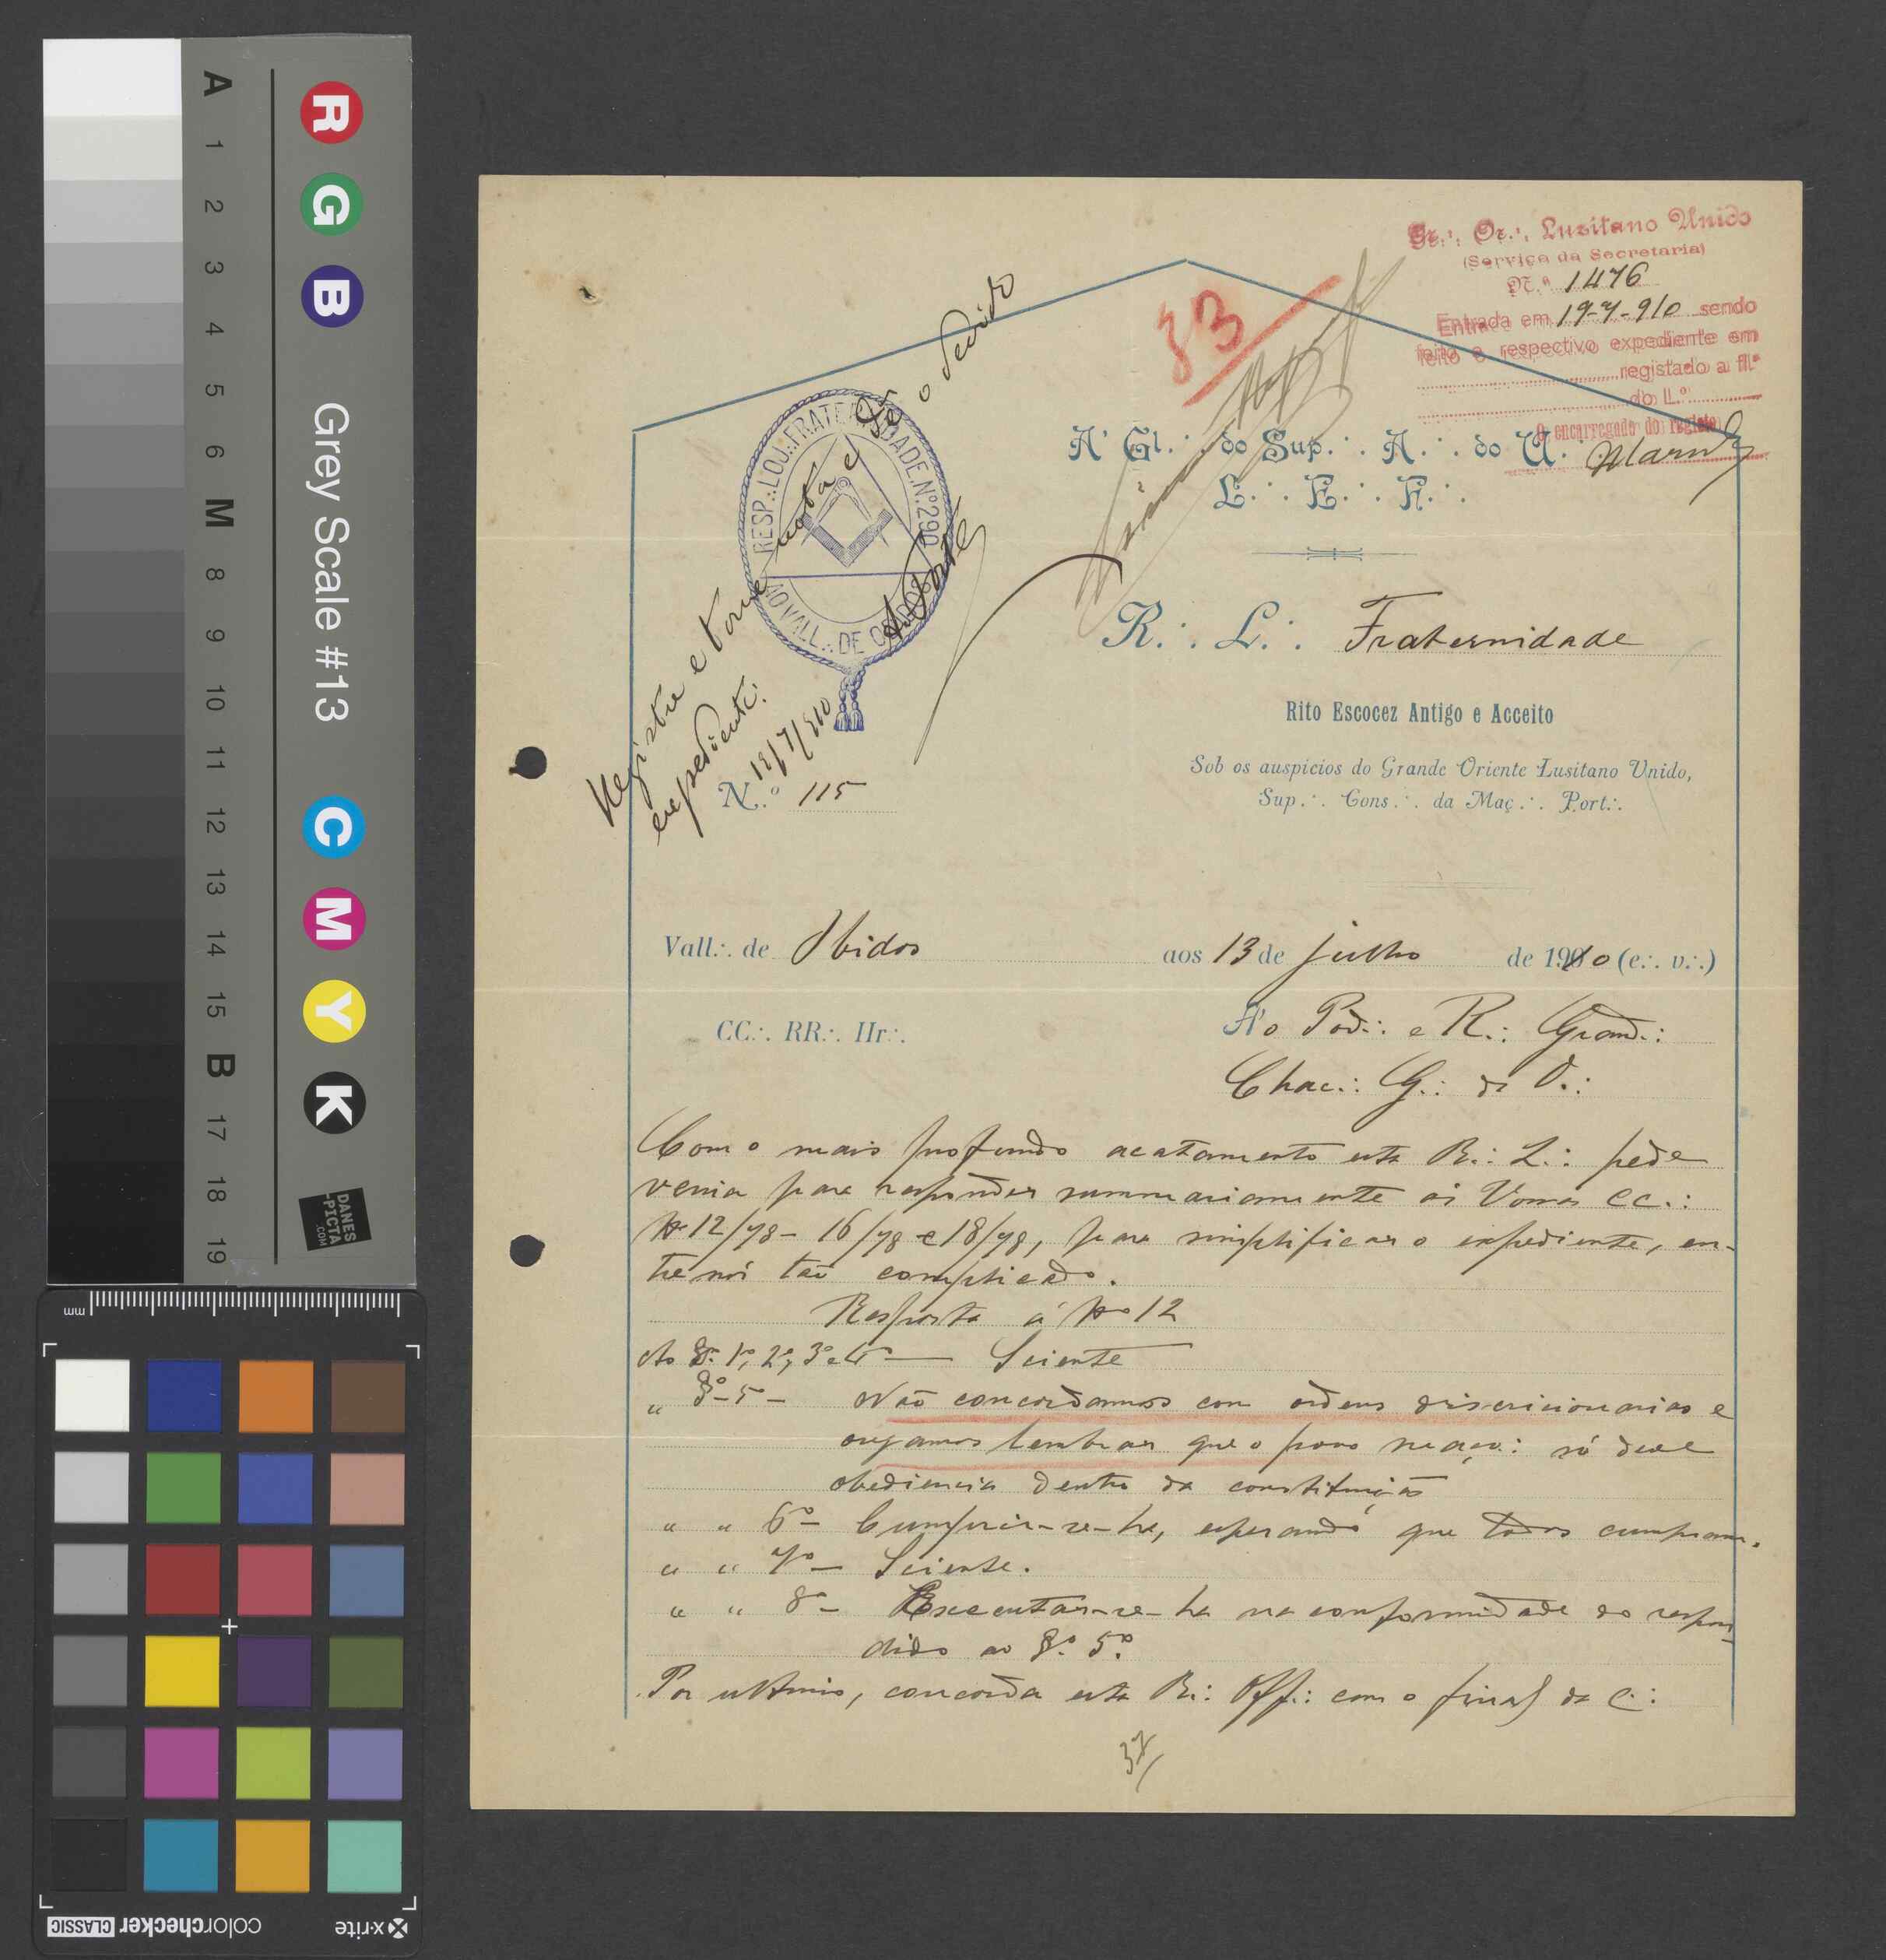 Gr∴ Or∴ Lusitano Unido
(Serviço da Secretaria)
N.º 1476
Entrada em 19-7-910 sendo
feito o respectivo expediente em
registado a fl.ª
do L.º
O encarregado do registo
83
RESP∴ LOJ∴ FRATERNIDADE Nº 290
AO VALL∴ DE OBIDOS
Registre e tome nota e
expediente.
19/7/910
A' Gl∴ do Sup∴ A∴ do U∴
L∴ E∴ F∴
R∴ L∴ Fraternidade
Rito Escocez Antigo e Acceito
Sob os auspicios do Grande Oriente Lusitano Unido,
Sup∴ Cons∴ da Maç∴ Port∴
N.º 115
Vall∴ de Obidos aos 13 de julho de 1910 (e∴ v∴)
CC∴ RR∴ IIr∴
A'o Pod∴ e R∴ Grand∴
Chac∴ G∴ da O∴
Com o mais profundo acatamento esta R∴ L∴ pede
venia para responder summariamente ás Vossas CC∴
Nº 12/78 - 16/78 e 18/78, para simplificar o expediente, en-
tre nós tão complicado.
Resposta á Nº 12
Ao §. 1º, 2º, 3º e 4º — Sciente
" §º 5º - Não concordamos com ordens discricionarias e
ousamos lembrar que o povo maç∴ só deve
obediencia dentro da constituição
" " 6º - Cumprir-se-ha, esperando que todos cumpram.
" " 7º - Sciente.
" " 8º - Executar-se-ha na conformidade do respon-
dido ao §º 5º
Por ultimo, concorda esta R∴ Off∴ com o final da C∴
A
1
2
3
4
5
6
M
8
9
10
11
12
13
14
15
B
17
18
19
R
G
B
Grey Scale #13
C
M
Y
K
DANES
-PICTA
.COM
mm
colorchecker CLASSIC
x-rite